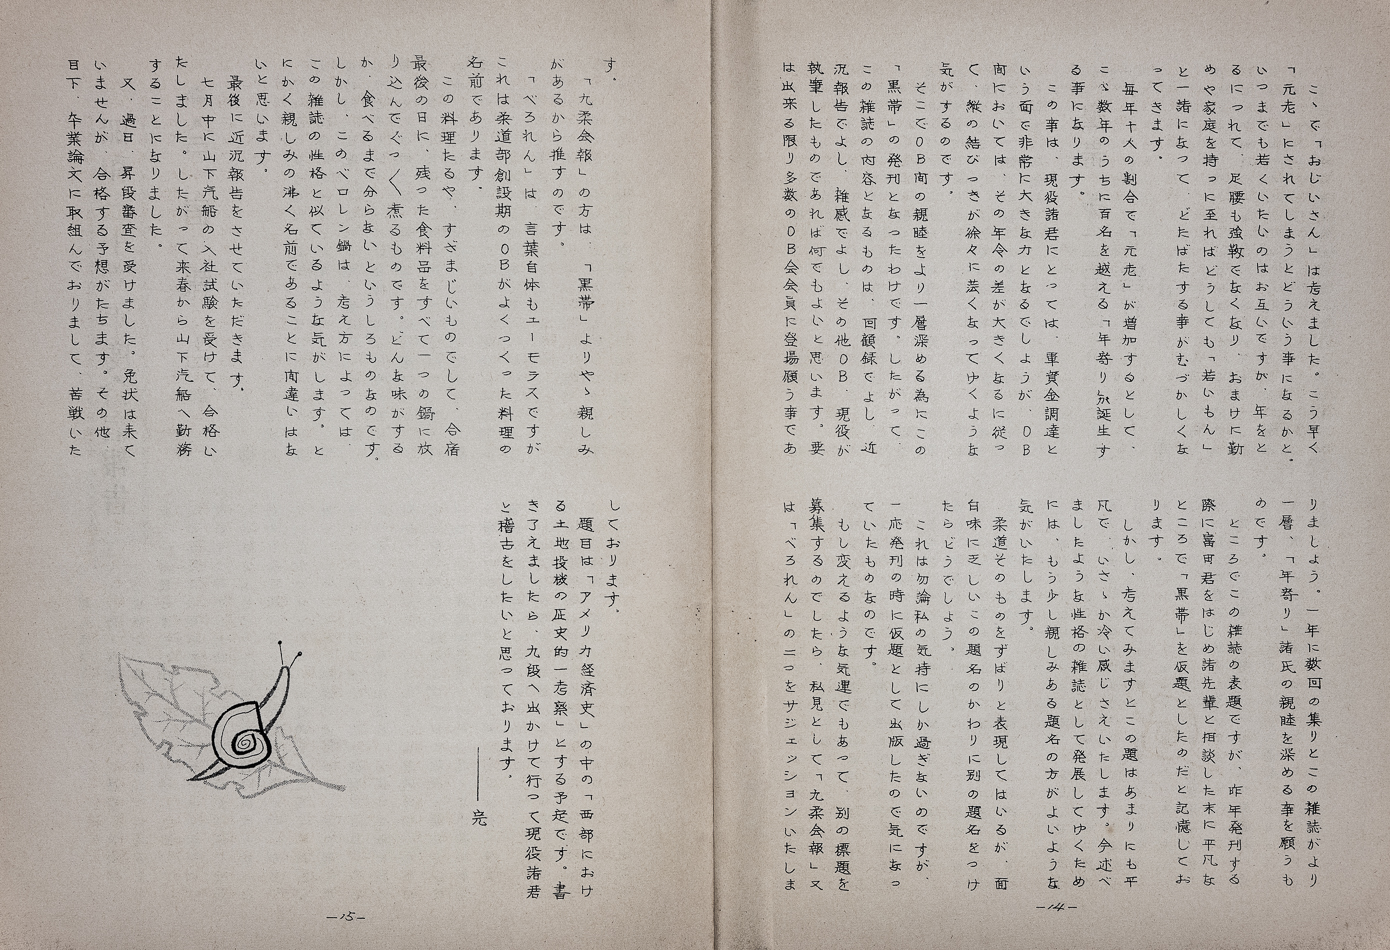 こゝで「おじいさん」は考えました。こう早く
「元老」にされてしまうとどういう事になるかと。
いつまでも若くいたいのはお互いですが、年をと
るにつれて、足腰も強靱でなくなり、おまけに勤
めや家庭を持つに至ればどうしても「若いもん」
と一諸になって、どたばたする事がむづかしくな
ってきます。
毎年十人の割合で「元老」が増加するとして、
こゝ数年のうちに百名を越える「年寄り」が誕生す
る事になります。
この事は、現役諸君にとっては、軍資金調達と
いう面で非常に大きな力となるでしょうが、OB
間においては、その年令の差が大きくなるに従っ
て、縦の結びつきが徐々に薄くなってゆくような
気がするのです。
そこでOB間の親睦をより一層深める為にこの
「黒帯」の発刊となったわけです。したがって、
この雑誌の内容となるものは、回顧録でよし、近
況報告でよし、雑感でよし、その他OB、現役が
執筆したものであれば何でもよいと思います。要
は出来る限り多数のOB会会員に登場願う事であ
りましよう。一年に数回の集りとこの雑誌がより
一層、「年寄り」諸氏の親睦を深める事を願うも
のです。
ところでこの雑誌の表題ですが、昨年発刊する
際に富田君をはじめ諸先輩と相談した末に平凡な
ところで「黒帯」を仮題としたのだと記憶してお
ります。
しかし、考えてみますとこの題はあまりにも平
凡で、いさゝか冷い感じさえいたします。今述べ
ましたような性格の雑誌として発展してゆくため
には、もう少し親しみある題名の方がよいような
気がいたします。
柔道そのものをずばりと表現してはいるが、面
白味に乏しいこの題名のかわりに別の題名をつけ
たらどうでしよう。
これは勿論私の気持にしか過ぎないのですが、
一応発刊の時に仮題として出版したので気になっ
ていたものなのです。
もし変えるような気運でもあって、別の標題を
募集するのでしたら、私見として「九柔会報」又
は「べろれん」の二つをサジェッションいたしま
-14-
す。
「九柔会報」の方は、「黒帯」よりやゝ親しみ
があるから推すのです。
「べろれん」は、言葉自体もユーモラスですが
これは柔道部創設期のOBがよくつくった料理の
名前であります。
この料理たるや、すさまじいものでして、合宿
最後の日に、残った食料品をすべて一つの鍋に放
り込んでぐつ〱煮るものです。どんな味がする
か、食べるまで分らないというしろものなのです。
しかし、このベロレン鍋は、考え方によっては、
この雑誌の性格と似ているような気がします。と
にかく親しみの沸く名前であることに間違いはな
いと思います。
最後に近況報告をさせていただきます。
七月中に山下汽船の入社試験を受けて、合格い
たしました。したがって来春から山下汽船へ勤務
することになりました。
又、過日、昇段審査を受けました。免状は未て
いませんが、合格する予想がたちます。その他
目下、卒業論文に取組んでおりまして、苦戦いた
しております。
題目は「アメリカ経済史」の中の「西部におけ
る土地投機の歴史的一考察」とする予定です。書
き了えましたら、九段へ出かけて行って現役諸君
と稽古をしたいと思っております。
――完
-15-